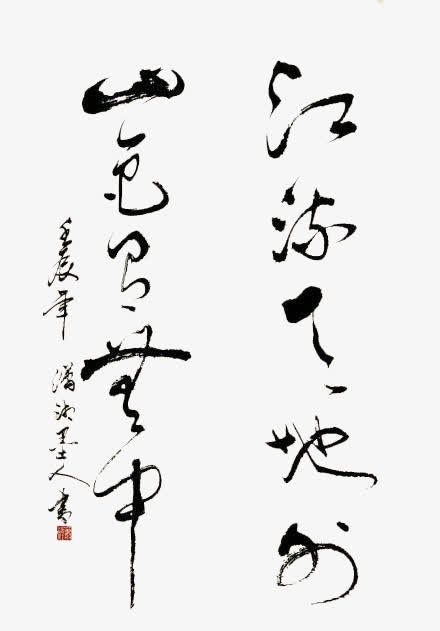 江流天地外
山色有無中
壬辰年 瀟湘墨人書